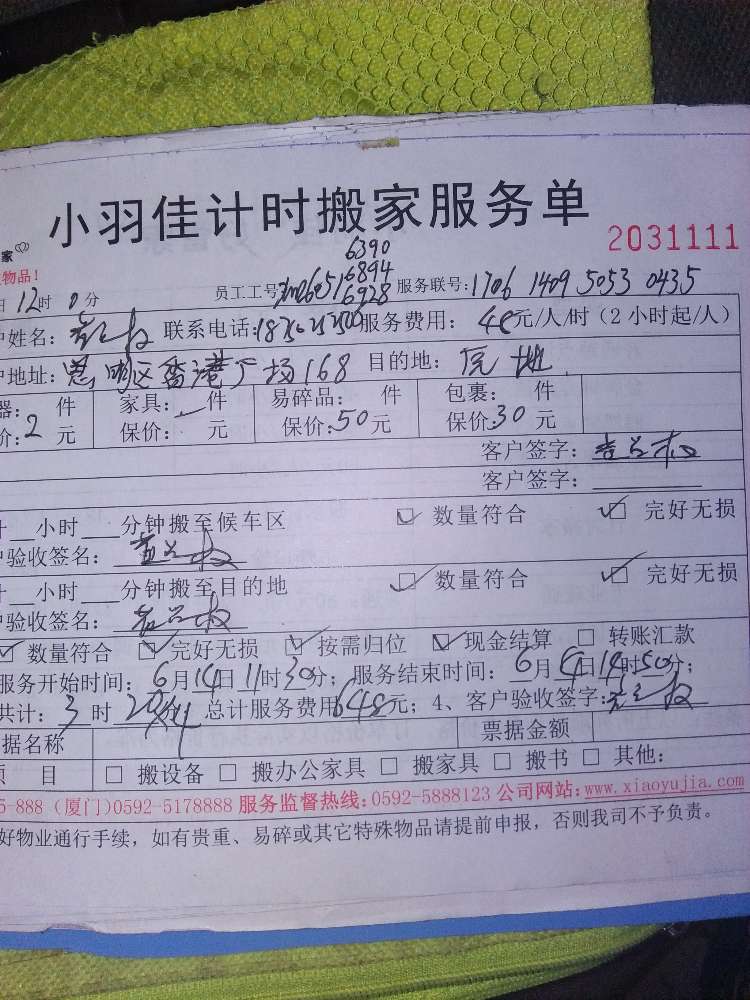 小羽佳计时搬家服务单
家
2031111
物品!
6390
6894
日 12时 0分 员工工号 6928 服务联号:1706 1409 5053 0435
户姓名: 联系电话: 服务费用: 48元/人/时(2小时起/人)
户地址: 思明区香港广场168 目的地: 原地
器: 件 家具: 件 易碎品: 件 包裹: 件
价:2元 保价: 元 保价:50元 保价:30元
客户签字:
客户签字:
计 小时 分钟搬至候车区 ☑ 数量符合 ☑ 完好无损
户验收签名:
计 小时 分钟搬至目的地 ☑ 数量符合 ☑ 完好无损
户验收签名:
☑ 数量符合 ☑ 完好无损 ☑ 按需归位 ☑ 现金结算 □ 转账汇款
服务开始时间: 6月14日11时30分; 服务结束时间: 6月14日14时50分;
共计: 3时20分 总计服务费用648元; 4、客户验收签字:
据名称 票据金额
项 目 □ 搬设备 □ 搬办公家具 □ 搬家具 □ 搬书 □ 其他:
5-888 (厦门)0592-5178888 服务监督热线:0592-5888123 公司网站:www.xiaoyujia.com
好物业通行手续,如有贵重、易碎或其它特殊物品请提前申报,否则我司不予负责。